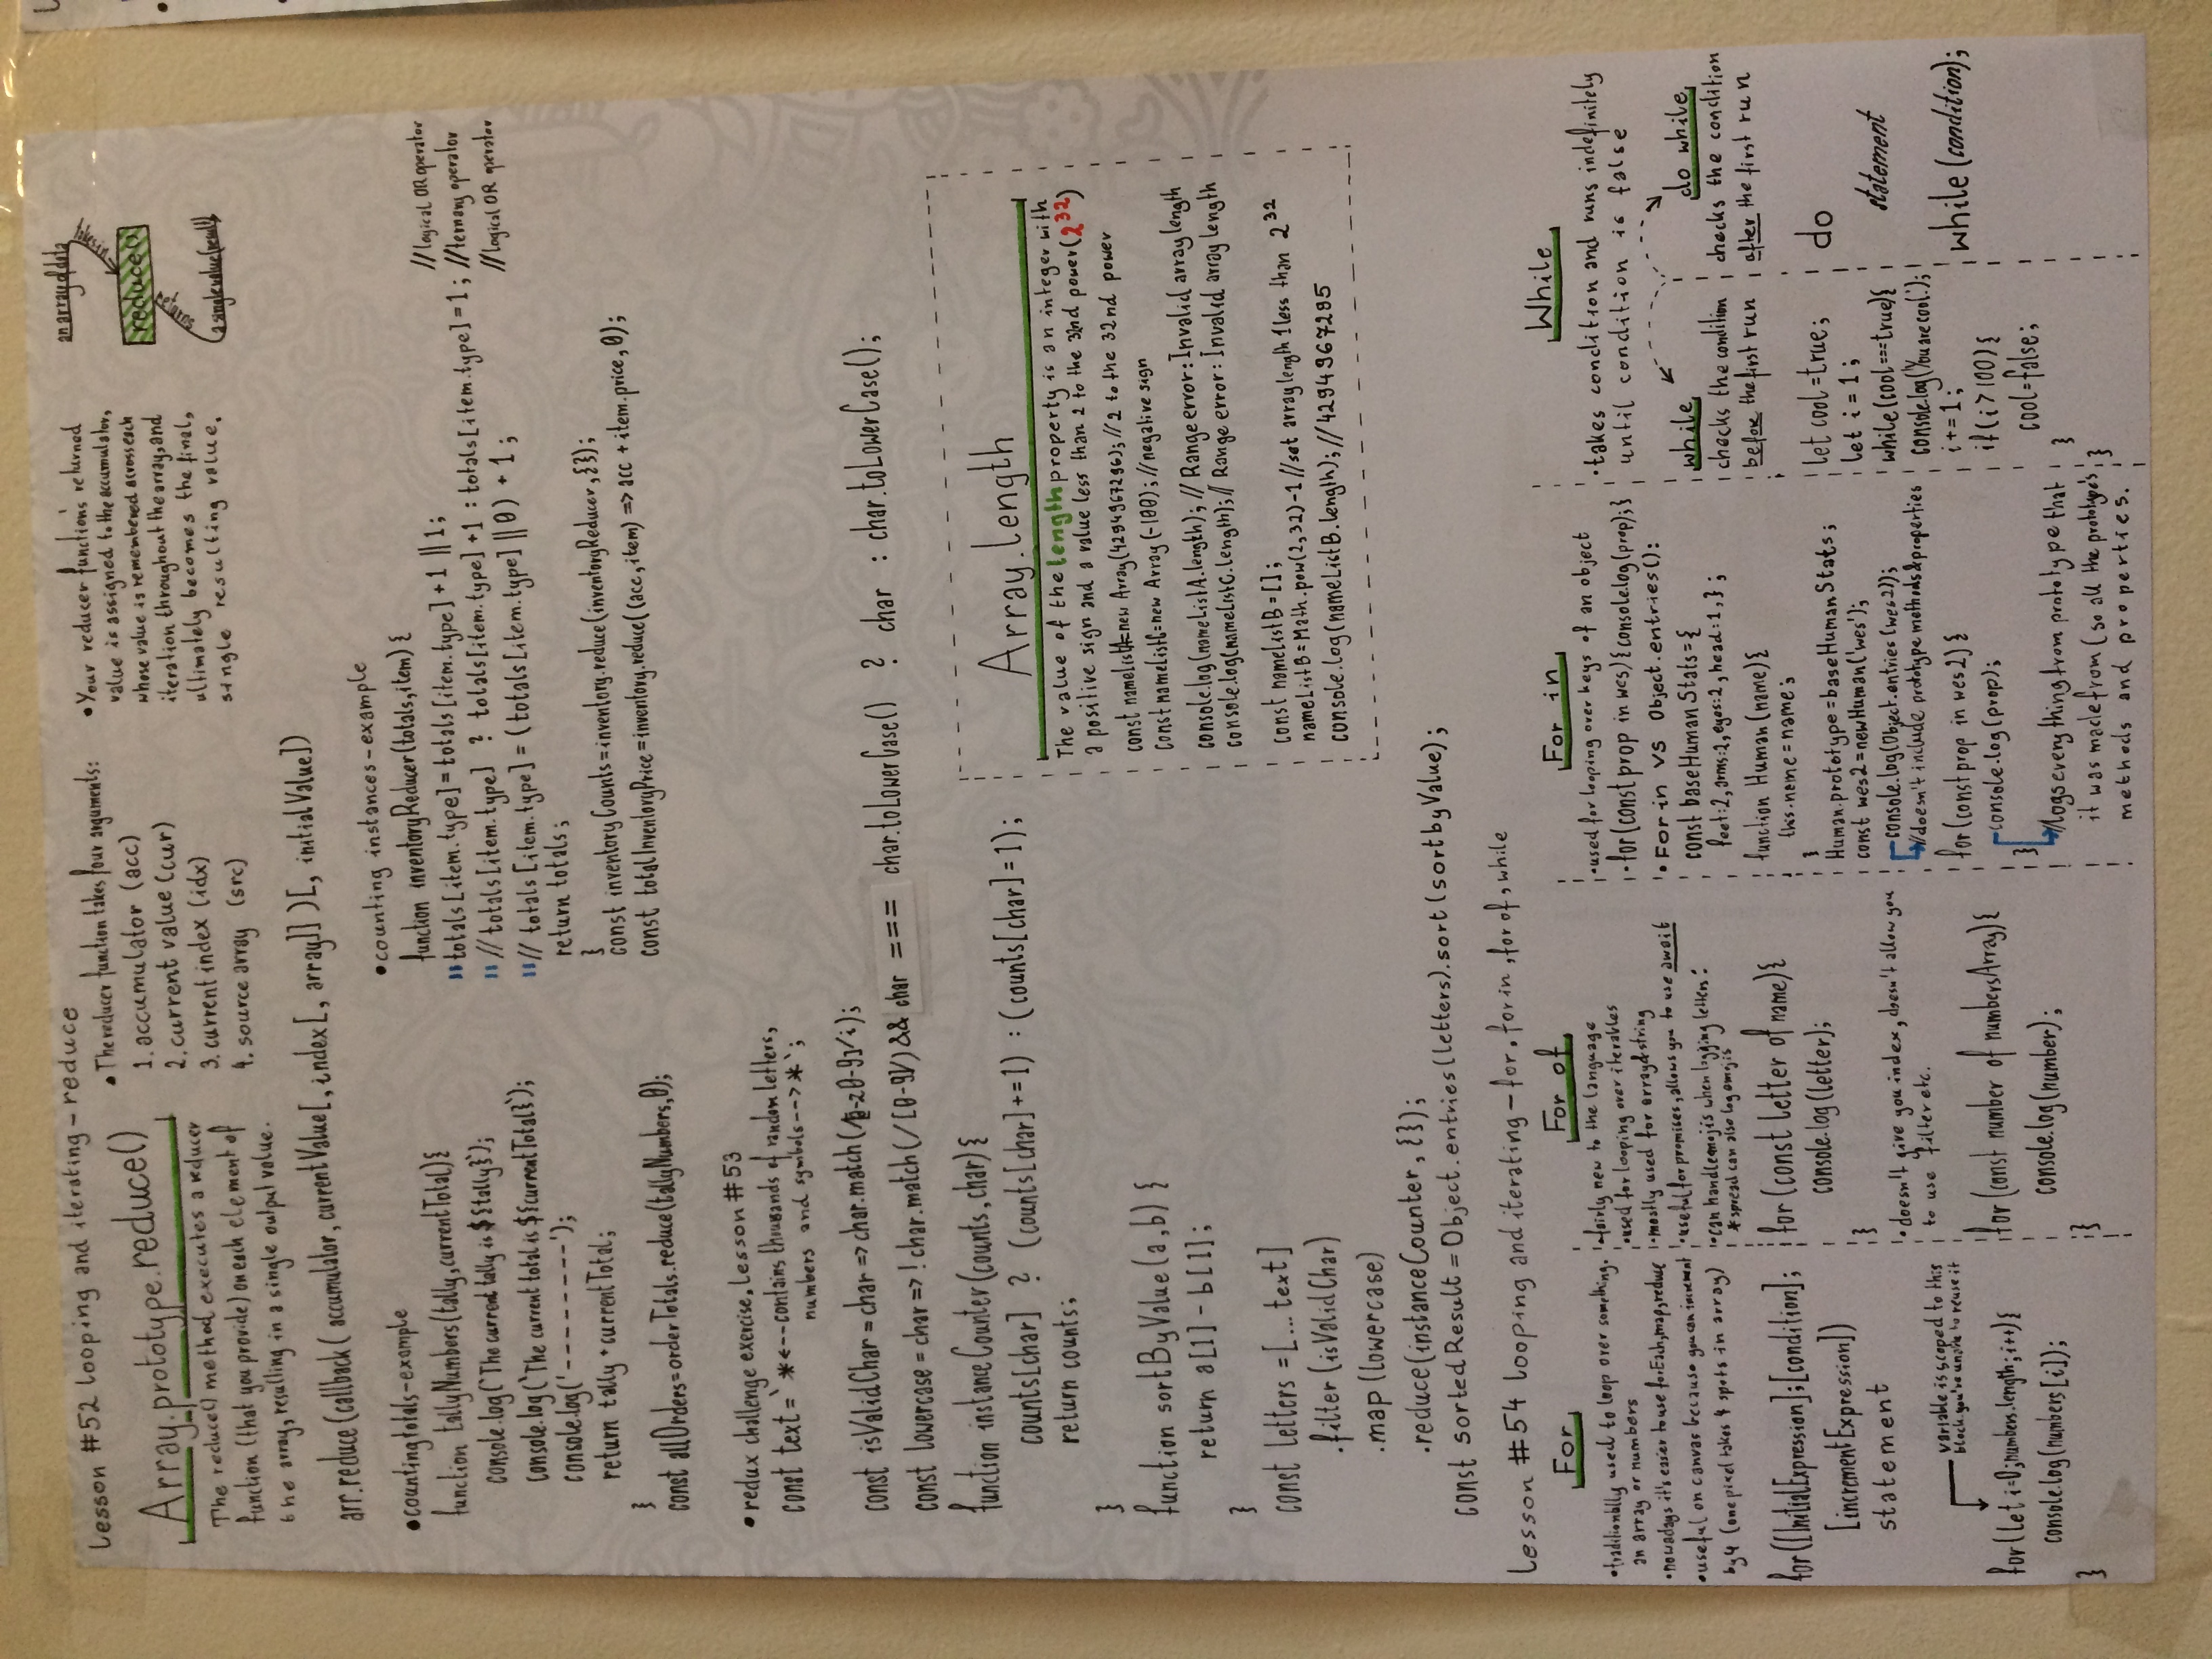 Lesson #52 looping and iterating – reduce
Array.prototype.reduce()
The reduce() method executes a reducer
function (that you provide) on each element of
the array, resulting in a single output value.
• The reducer function takes four arguments:
1. accumulator (acc)
2. current value (cur)
3. current index (idx)
4. source array (src)
• Your reducer function's returned
value is assigned to the accumulator,
whose value is remembered across each
iteration throughout the array, and
ultimately becomes the final,
single resulting value.
an array of data
reduce()
returns
a single value (result)
arr.reduce(callback( accumulator, currentValue[, index[, array]] )[, initialValue])
• counting totals – example
function tallyNumbers(tally, currentTotal){
console.log(`The current tally is ${tally}`);
console.log(`The current total is ${currentTotal}`);
console.log('--------');
return tally + currentTotal;
}
const allOrders=orderTotals.reduce(tallyNumbers,0);
• counting instances – example
function inventoryReducer(totals,item) {
totals[item.type]=totals[item.type] + 1 || 1; //logical OR operator
// totals[item.type] ? totals[item.type] +1 : totals[item.type]=1; //ternary operator
// totals[item.type] = (totals[item.type] || 0) + 1; //logical OR operator
return totals;
}
const inventoryCounts=inventory.reduce(inventoryReducer,{});
const totalInventoryPrice=inventory.reduce((acc,item) => acc + item.price, 0);
• redux challenge exercise, Lesson #53
const text=`*<--contains thousands of random letters,
numbers and symbols-->*`;
const isValidChar = char => char.match(/[a-z0-9]/i);
const lowercase = char => !char.match(/[0-9]/) && char === char.toLowerCase() ? char : char.toLowerCase();
function instanceCounter(counts, char) {
counts[char] ? (counts[char]+=1) : (counts[char]=1);
return counts;
}
function sortByValue(a,b) {
return a[1] - b[1];
}
const letters =[...text]
.filter(isValidChar)
.map(lowercase)
.reduce(instanceCounter, {});
const sortedResult = Object.entries(letters).sort(sortbyValue);
Array.length
The value of the length property is an integer with
a positive sign and a value less than 2 to the 32nd power(2^32)
const namelistA=new Array(4294967296); //2 to the 32nd power
const namelistC=new Array(-100); //negative sign
console.log(nameListA.length); // Range error: Invalid array length
console.log(nameListC.length); // Range error: Invalid array length
const namelistB=[];
nameListB=Math.pow(2,32)-1 //set array length 1 less than 2^32
console.log(nameListB.length); //4294967295
Lesson #54 looping and iterating – for, for in, for of, while
For
• traditionally used to loop over something.
an array or numbers
• nowadays it's easier to use forEach, map, reduce
• useful on canvas because you can increment
by 4 (one pixel takes 4 spots in array)
for([InitialExpression];[condition];
[incrementExpression])
statement
variable is scoped to this
block. you're unable to reuse it
for(let i=0;numbers.length;i++){
console.log(numbers[i]);
}
For of
• fairly new to the language
• used for looping over iterables
• mostly used for array&string
• useful for promises, allows you to use await
• can handle emojis when logging letters:
* spread can also log emojis
for (const letter of name){
console.log(letter);
}
• doesn't give you index, doesn't allow you
to use filter etc.
for (const number of numbersArray){
console.log(number);
}
For in
• used for looping over keys of an object
• for(const prop in wes){console.log(prop);}
• For in VS Object.entries():
const baseHumanStats={
feet:2, arms:2, eyes:2, head:1, };
function Human(name){
this.neme = name;
}
Human.prototype=baseHumanStats;
const wes2=newHuman('wes');
console.log(Object.entries(wes2));
//doesn't include prototype methods&properties
for(const prop in wes2) {
console.log(prop);
}
//logs everything from prototype that
it was made from (so all the prototype's
methods and properties.
While
• takes condition and runs indefinitely
until condition is false
while
checks the condition
before the first run
let cool=true;
let i = 1;
while(cool===true){
console.log('You are cool.');
i+=1;
if(i>100){
cool=false;
}
}
do while
checks the condition
after the first run
do
statement
while (condition);